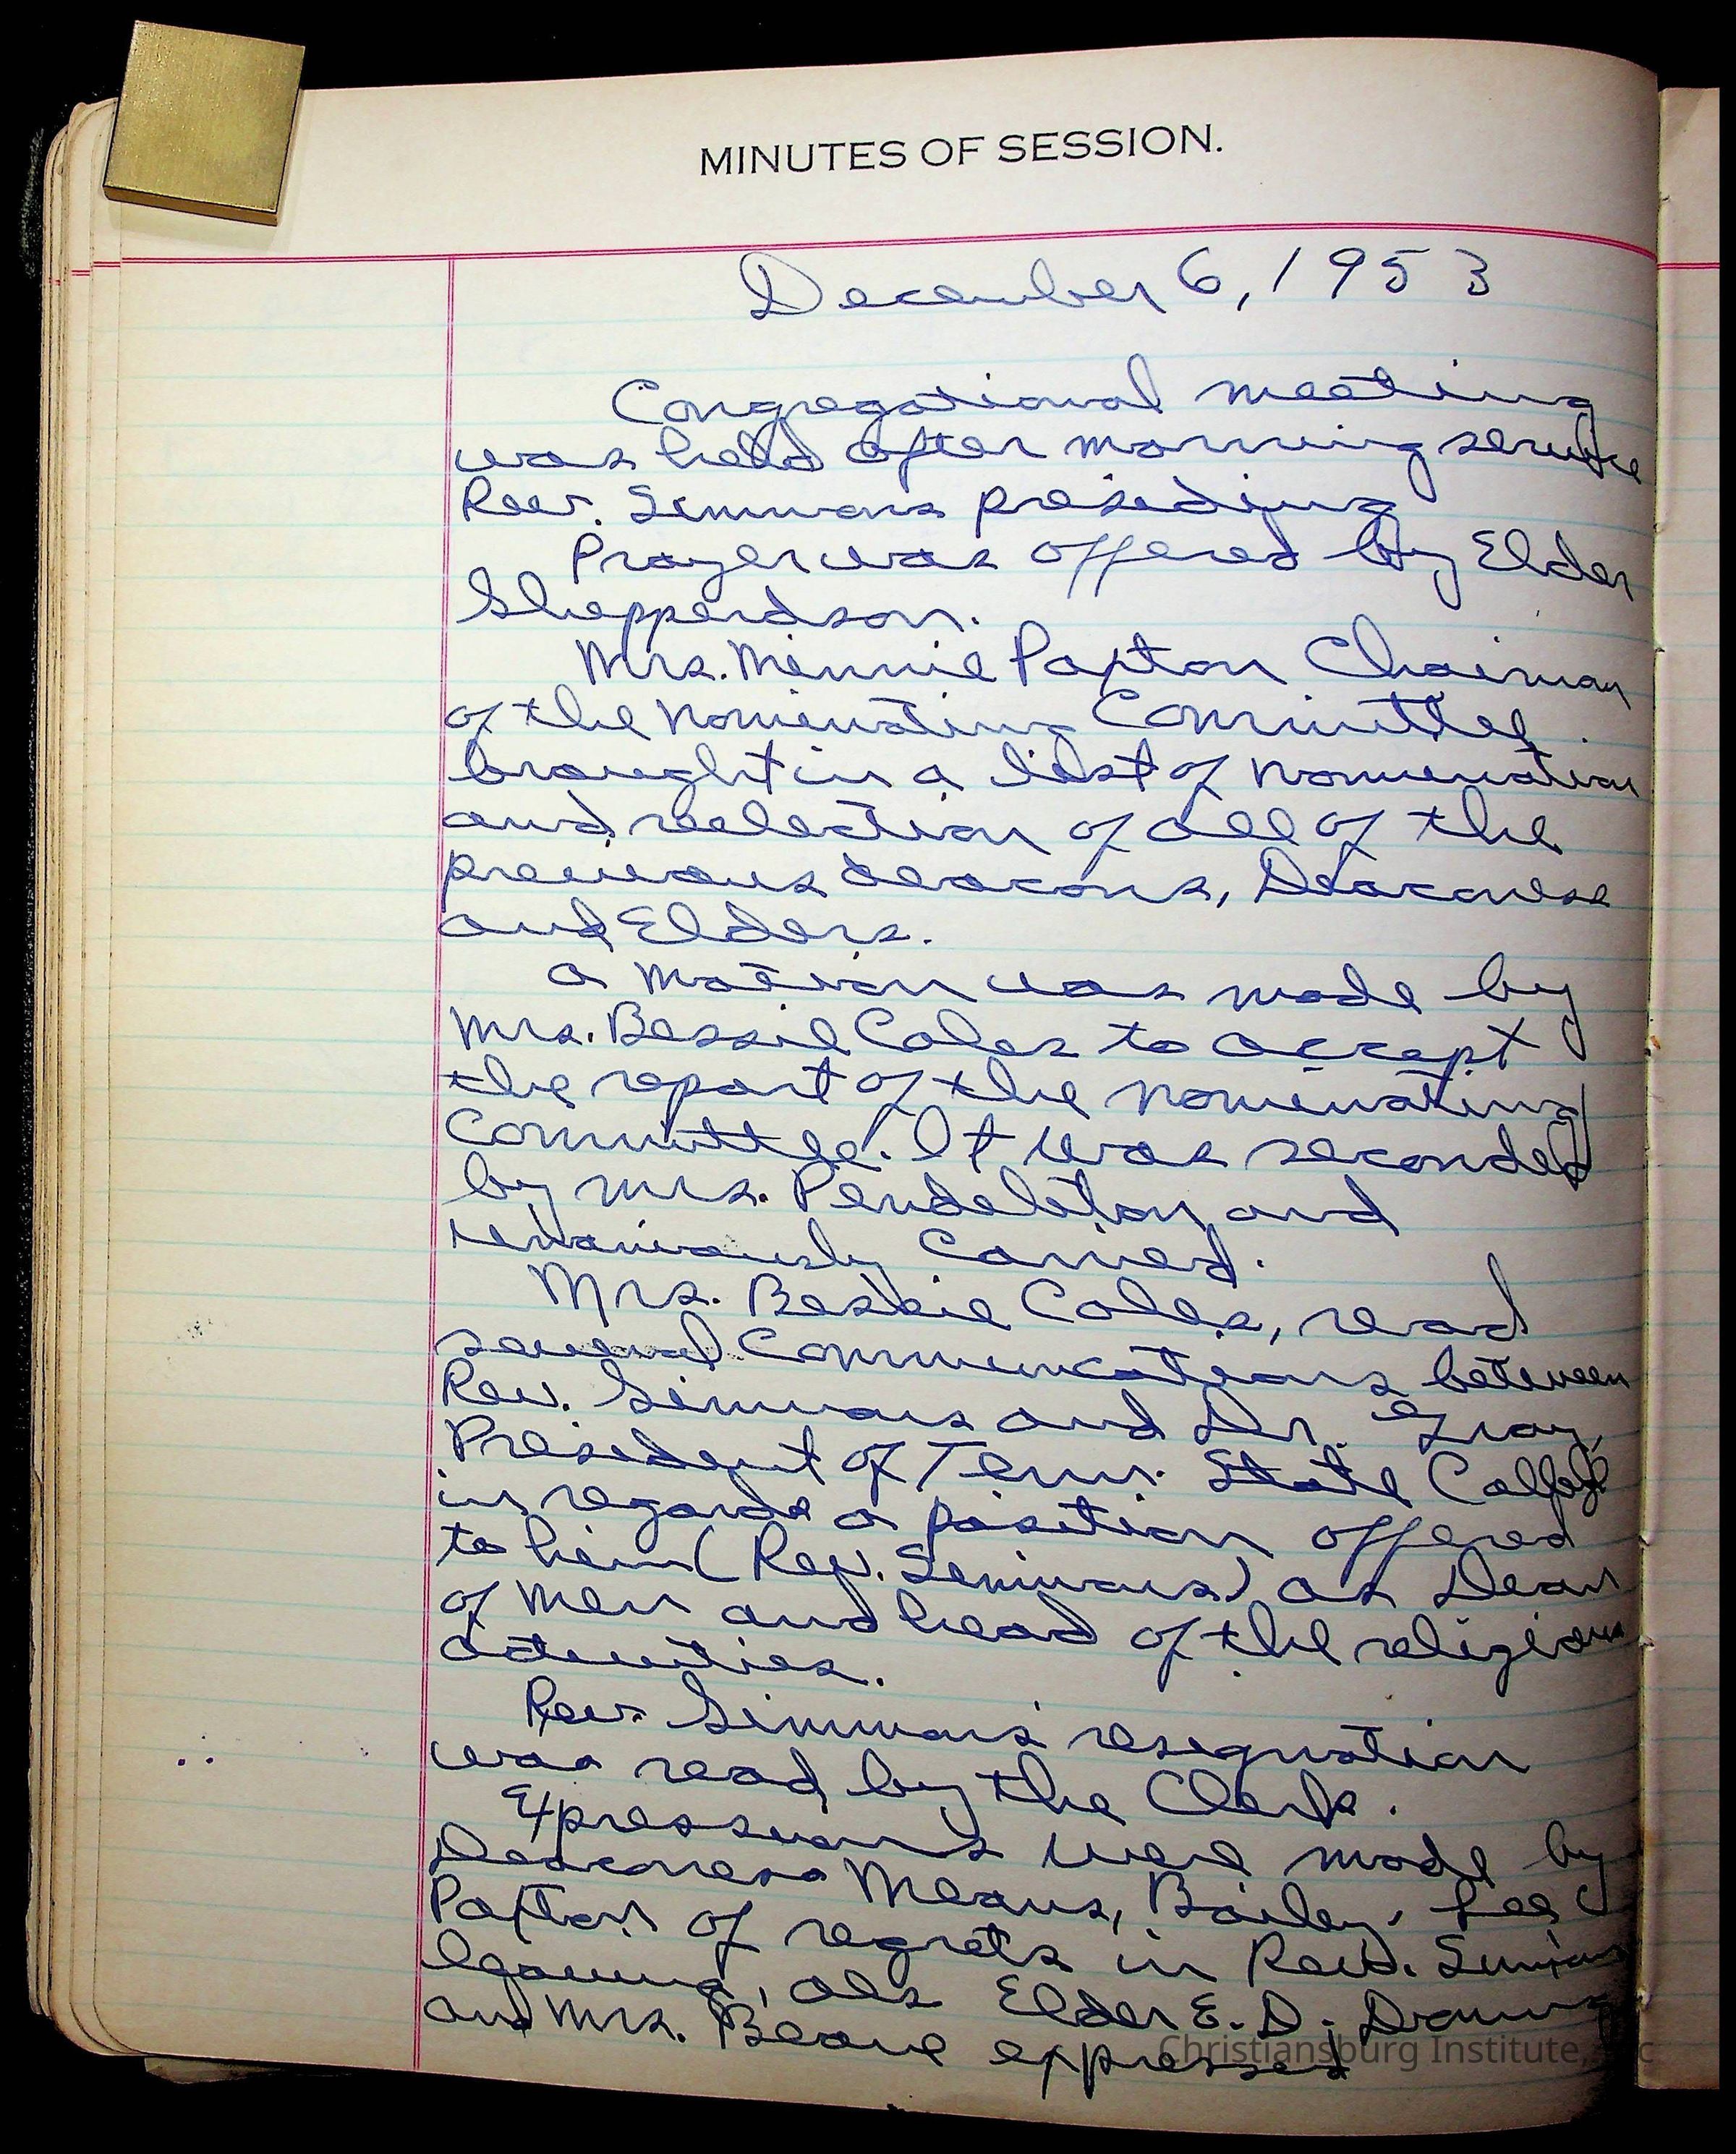 MINUTES OF SESSION.
December 6, 1953
Congregational meeting
was held after morning service
Rev. Simmons presiding
Prayer was offered by Elder
Shepperdson.
Mrs. Minnie Paxton Chairman
of the nominating Committee
brought in a list of nomination
and reelection of all of the
previous deacons, Deaconess
and Elders.
a motion was made by
Mrs. Bessie Coles to accept
the report of the nominating
Committee. It was seconded
by mrs. Pendelton and
carried.
Mrs. Bessie Coles, read
several Communications between
Rev. Simmons and Dr. Gray,
President of Tenn. State College
in regards a position offered
to him (Rev. Simmons) as Dean
of Men and head of the religious
activities.
Rev. Simmons resignation
was read by the Clerk.
Expressions were made by
Deaconess Means, Bailey, Lee
Paxton of regrets in Rev. Simmons
also Elder E. D.
and Mrs. expressed
Christiansburg Institute,